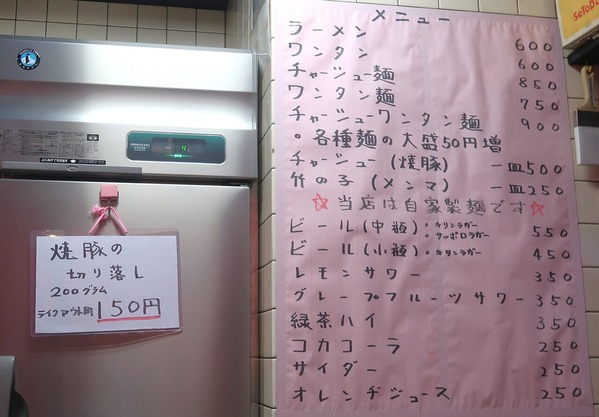 メニュー
ラーメン 600
ワンタン 600
チャーシュー麺 850
ワンタン麺 750
チャーシューワンタン麺 900
。各種麺の大盛50円増
チャーシュー(焼豚) 一皿500
竹の子(メンマ) 一皿250
☆当店は自家製麺です☆
ビール(中瓶)。キリンラガー 。サッポロラガー 550
ビール(小瓶)。キリンラガー 450
レモンサワー 350
グレープフルーツサワー 350
緑茶ハイ 350
コカコーラ 250
サイダー 250
オレンヂジュース 250
焼豚の
切り落し
200グラム
テイクアウト用 150円
HOSHIZAKI